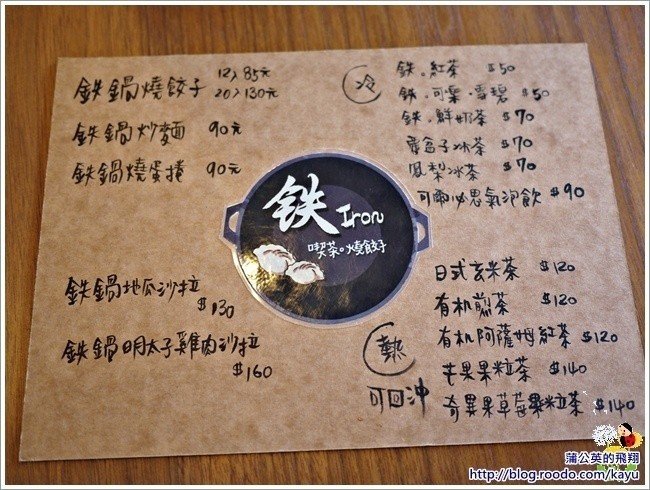 鉄鍋燒餃子 12入85元
20入130元
鉄鍋炒麵 90元
鉄鍋燒蛋捲 90元
鉄鍋地瓜沙拉
$130
鉄鍋明太子雞肉沙拉
$160
鉄 Iron
喫茶。燒餃子
冷
鉄.紅茶 $50
鉄.可樂.雪碧 $50
鉄.鮮奶茶 $70
盒子冰茶 $70
鳳梨冰茶 $70
可爾必思氣泡飲 $90
熱
可回沖
日式玄米茶 $120
有机煎茶 $120
有机阿薩姆紅茶 $120
芒果果粒茶 $140
奇異果草莓果粒茶 $140
蒲公英的飛翔
http://blog.roodo.com/kayu